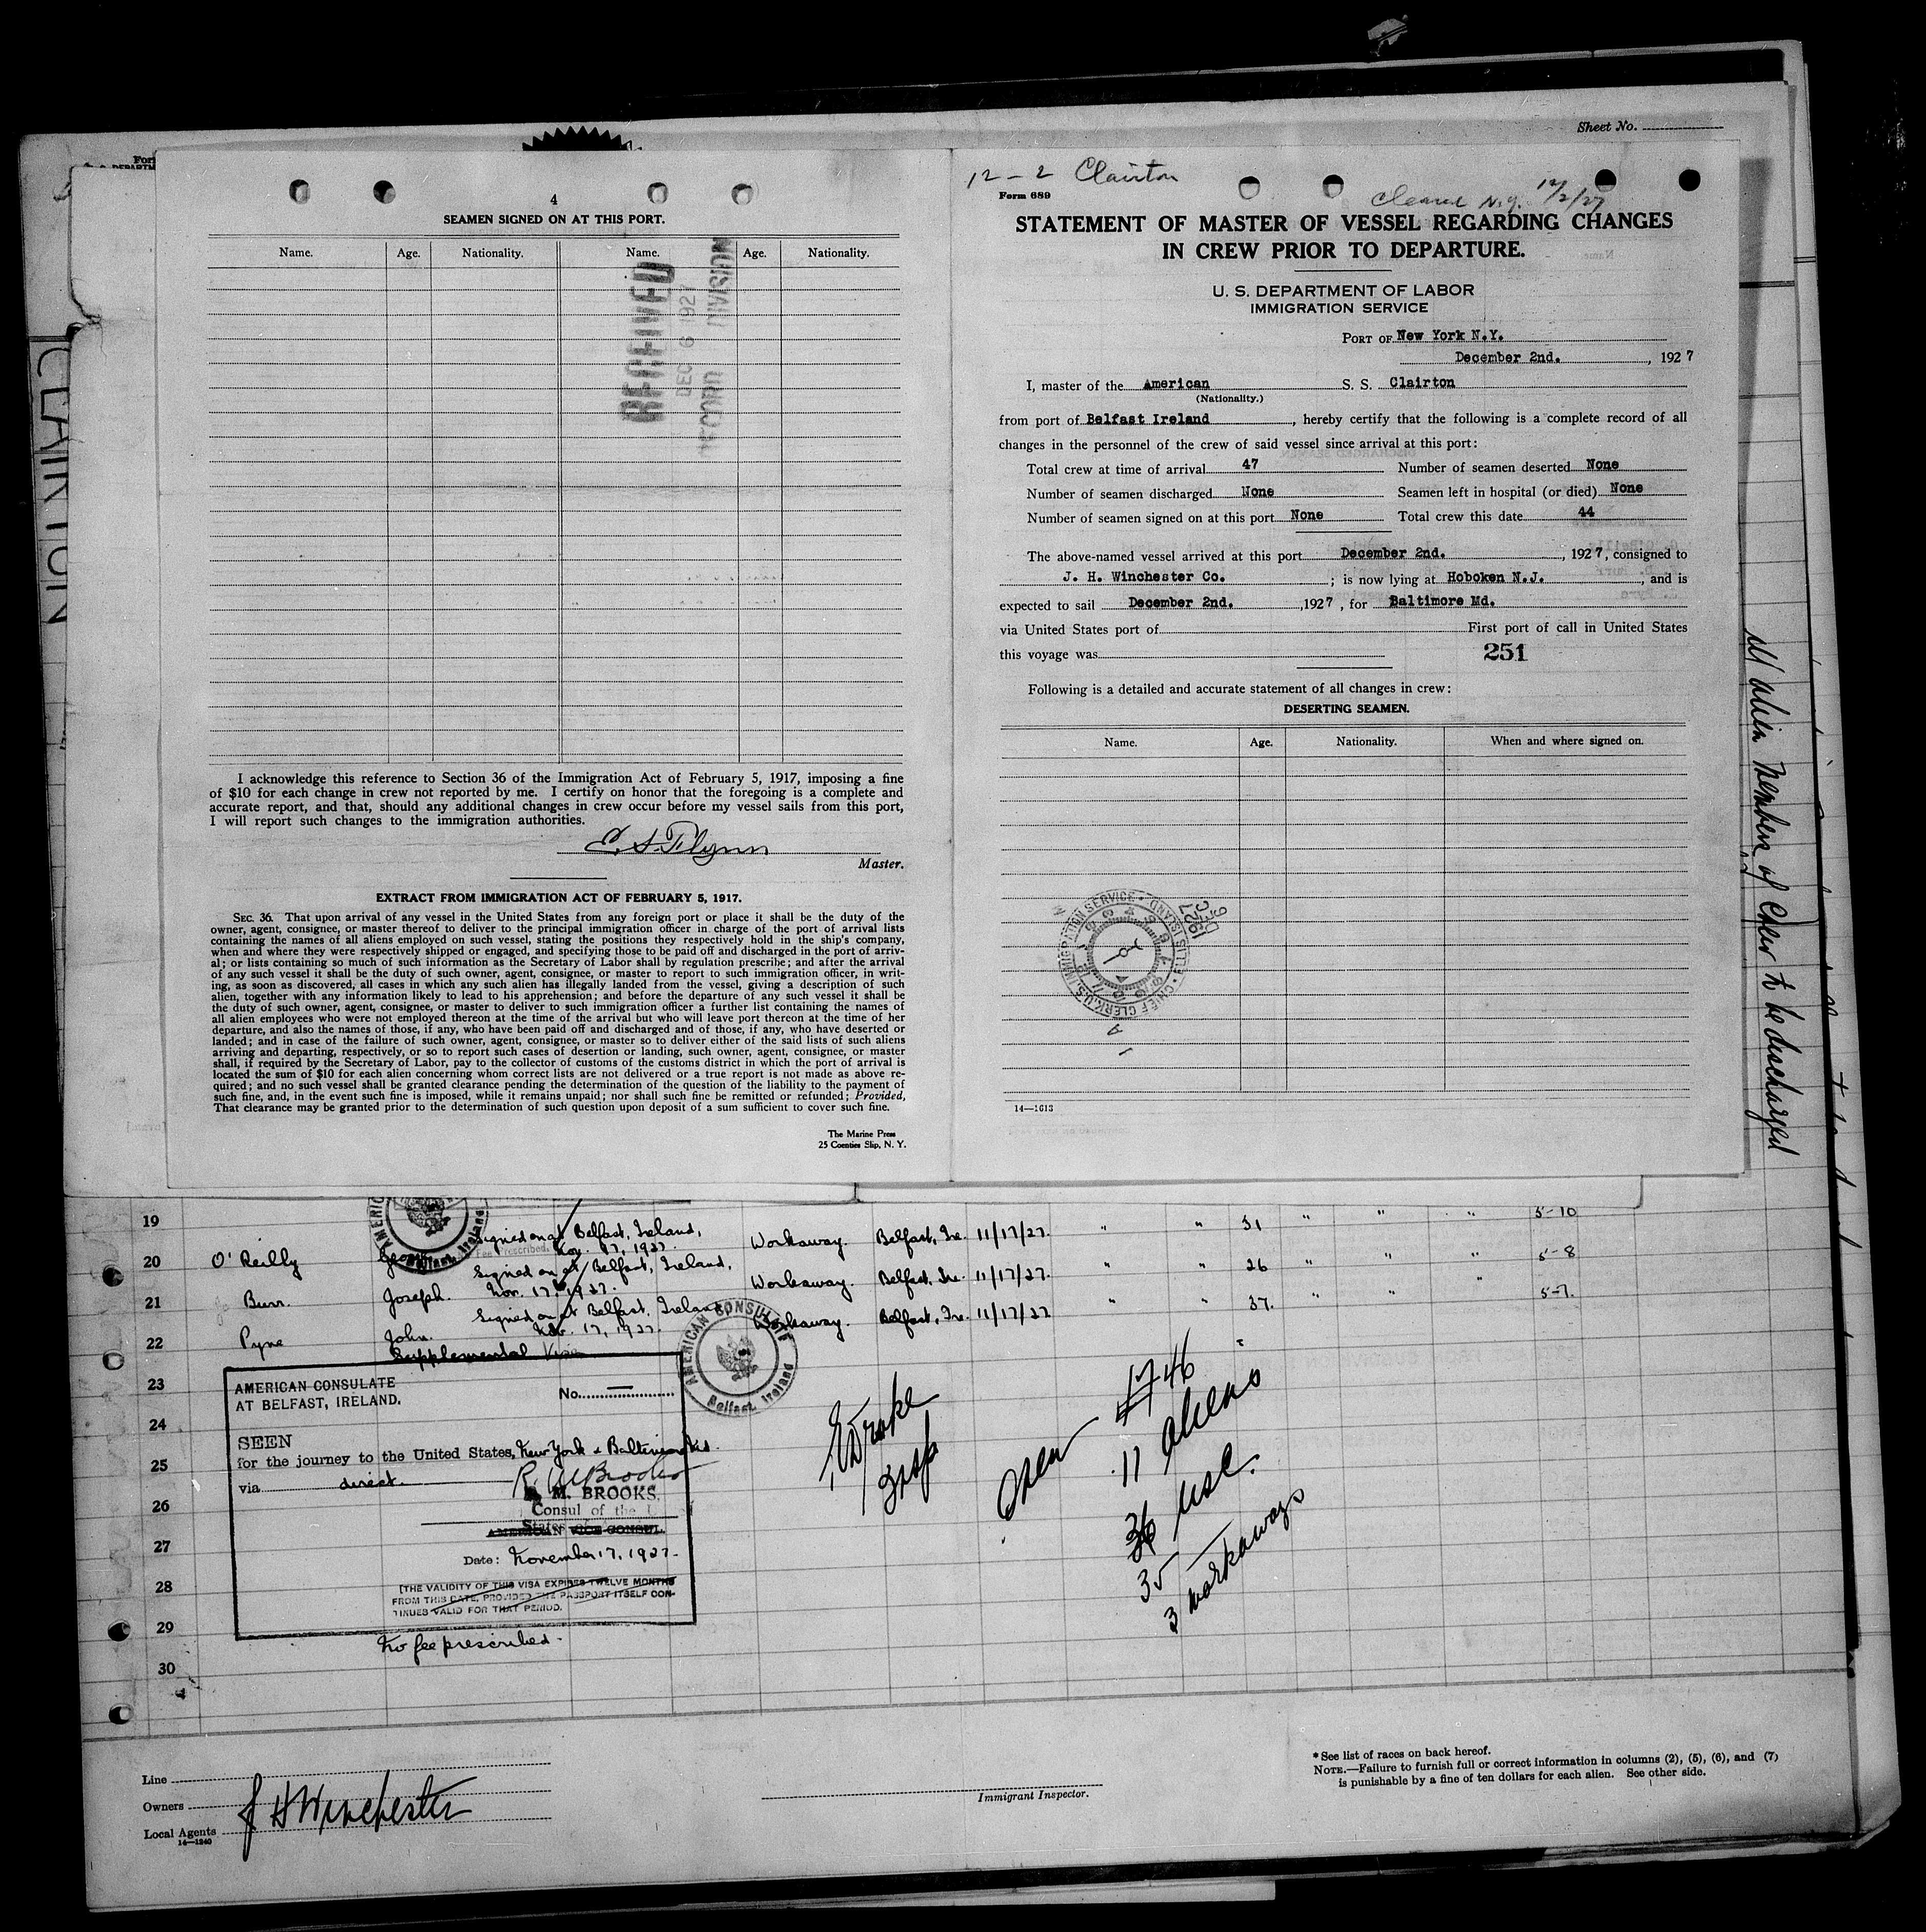 Sheet No.
CLAIRTON
4
SEAMEN SIGNED ON AT THIS PORT.
Name. Age. Nationality. Name. Age. Nationality.
RECEIVED
DEC 6 1927
RECORD DIVISION
I acknowledge this reference to Section 36 of the Immigration Act of February 5, 1917, imposing a fine
of $10 for each change in crew not reported by me. I certify on honor that the foregoing is a complete and
accurate report, and that, should any additional changes in crew occur before my vessel sails from this port,
I will report such changes to the immigration authorities.
E. S. Flynn
Master.
EXTRACT FROM IMMIGRATION ACT OF FEBRUARY 5, 1917.
SEC. 36. That upon arrival of any vessel in the United States from any foreign port or place it shall be the duty of the
owner, agent, consignee, or master thereof to deliver to the principal immigration officer in charge of the port of arrival lists
containing the names of all aliens employed on such vessel, stating the positions they respectively hold in the ship's company,
when and where they were respectively shipped or engaged, and specifying those to be paid off and discharged in the port of arriv-
al; or lists containing so much of such information as the Secretary of Labor shall by regulation prescribe; and after the arrival
of any such vessel it shall be the duty of such owner, agent, consignee, or master to report to such immigration officer, in writ-
ing, as soon as discovered, all cases in which any such alien has illegally landed from the vessel, giving a description of such
alien, together with any information likely to lead to his apprehension; and before the departure of any such vessel it shall be
the duty of such owner, agent, consignee, or master to deliver to such immigration officer a further list containing the names of
all alien employees who were not employed thereon at the time of the arrival but who will leave port thereon at the time of her
departure, and also the names of those, if any, who have been paid off and discharged and of those, if any, who have deserted or
landed; and in case of the failure of such owner, agent, consignee, or master so to deliver either of the said lists of such aliens
arriving and departing, respectively, or so to report such cases of desertion or landing, such owner, agent, consignee, or master
shall, if required by the Secretary of Labor, pay to the collector of customs of the customs district in which the port of arrival is
located the sum of $10 for each alien concerning whom correct lists are not delivered or a true report is not made as above re-
quired; and no such vessel shall be granted clearance pending the determination of the question of the liability to the payment of
such fine, and, in the event such fine is imposed, while it remains unpaid; nor shall such fine be remitted or refunded; Provided,
That clearance may be granted prior to the determination of such question upon deposit of a sum sufficient to cover such fine.
The Marine Press
25 Coenties Slip, N. Y.
12-2 Clairton
Form 689
Cleared N.Y. 12/2/27
STATEMENT OF MASTER OF VESSEL REGARDING CHANGES
IN CREW PRIOR TO DEPARTURE.
U. S. DEPARTMENT OF LABOR
IMMIGRATION SERVICE
PORT OF New York N.Y.
December 2nd., 1927
I, master of the American S. S. Clairton
(Nationality.)
from port of Belfast Ireland, hereby certify that the following is a complete record of all
changes in the personnel of the crew of said vessel since arrival at this port:
Total crew at time of arrival 47 Number of seamen deserted None
Number of seamen discharged None Seamen left in hospital (or died) None
Number of seamen signed on at this port None Total crew this date 44
The above-named vessel arrived at this port December 2nd., 1927, consigned to
J. H. Winchester Co. ; is now lying at Hoboken N.J., and is
expected to sail December 2nd. ,1927, for Baltimore Md.
via United States port of First port of call in United States
this voyage was 251
Following is a detailed and accurate statement of all changes in crew:
DESERTING SEAMEN.
Name. Age. Nationality. When and where signed on.
CHIEF CLERK, U.S. IMMIGRATION SERVICE · ELLIS ISLAND
DEC 6 1927
14—1613
Members of Crew to be discharged
19
20 O'Reilly Signed on at Belfast, Ireland, Nov. 17, 1927. Workaway. Belfast, Ire. 11/17/27. " " 31 " " " 5-10
21 Burr. Joseph. Signed on at Belfast, Ireland, Nov. 17, 1927. Workaway. Belfast, Ire. 11/17/27. " " 26 " " " 5-8
22 Pyne John. Signed on at Belfast, Ireland Nov. 17, 1927. Workaway. Belfast, Ire. 11/17/27 " " 37. " " " 5-7.
Supplemental Visa
AMERICAN CONSULATE Belfast, Ireland
23
24
25
26
27
28
29
30
AMERICAN CONSULATE
AT BELFAST, IRELAND.
No. —
SEEN
for the journey to the United States, New York & Baltimore Md.
via direct.
M. BROOKS,
Consul of the
States
AMERICAN VICE CONSUL.
Date: November 17, 1927.
(THE VALIDITY OF THIS VISA EXPIRES TWELVE MONTHS
FROM THIS DATE, PROVIDED THE PASSPORT ITSELF CON-
TINUES VALID FOR THAT PERIOD.
No fee prescribed.
Drake
Insp
46
11 aliens
36 USC.
35
3 workaways
Line
Owners
Local Agents
14—1240
J H Winchester
Immigrant Inspector.
* See list of races on back hereof.
NOTE.—Failure to furnish full or correct information in columns (2), (5), (6), and (7)
is punishable by a fine of ten dollars for each alien. See other side.